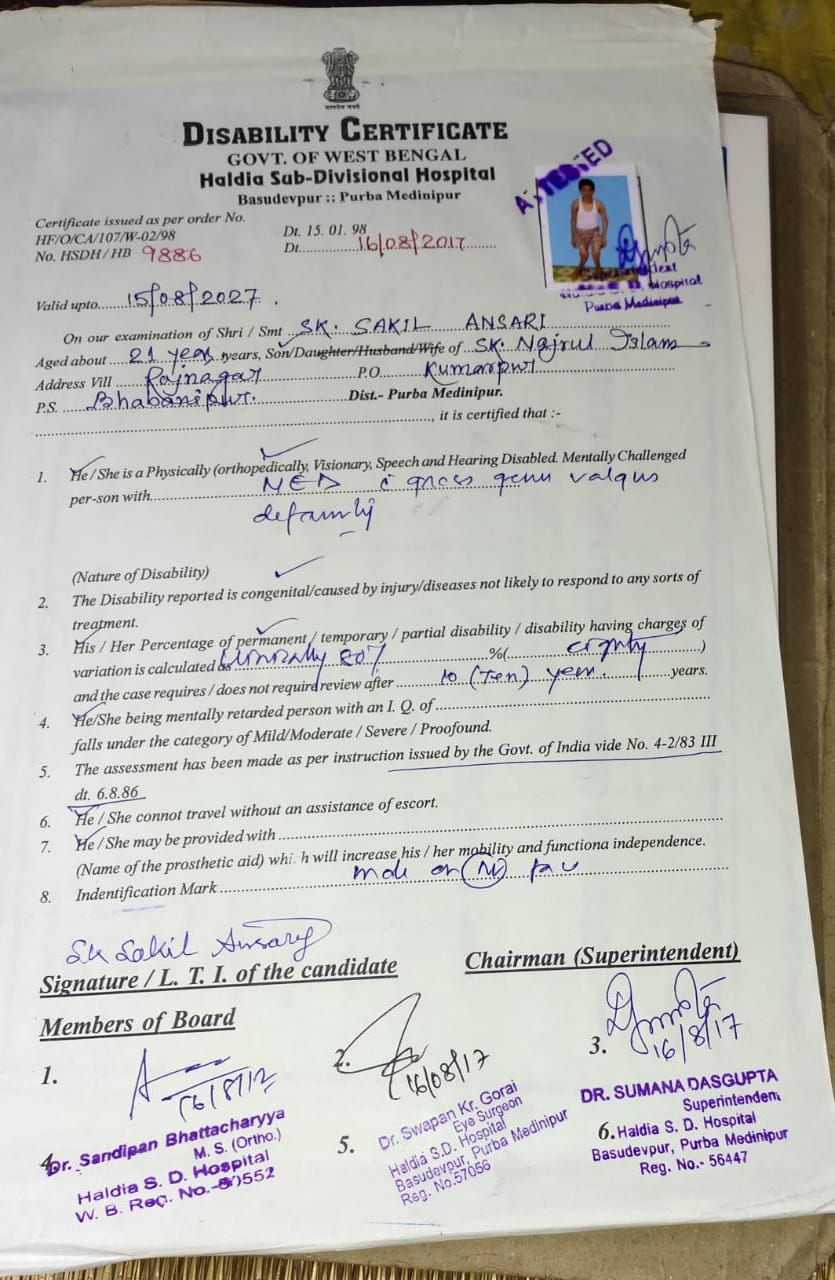 DISABILITY CERTIFICATE
GOVT. OF WEST BENGAL
Haldia Sub-Divisional Hospital
Basudevpur :: Purba Medinipur
ATTESTED
Certificate issued as per order No.
HF/O/CA/107/W-02/98
Dt. 15. 01. 98
No. HSDH / HB 9886
Dt. 16/08/2017
Superintendent
Hospital
Purba Medinipur
Valid upto 15/08/2027.
On our examination of Shri / Smt SK. SAKIL ANSARI
Aged about 21 year years, Son/Daughter/Husband/Wife of SK. Najrul Islam
Address Vill Rajnagar P.O Kumarpur
P.S. Bhabanipur. Dist.- Purba Medinipur.
, it is certified that :-
1. He / She is a Physically (orthopedically, Visionary, Speech and Hearing Disabled. Mentally Challenged
per-son with MED c gross genu valgus
defamity
(Nature of Disability)
2. The Disability reported is congenital/caused by injury/diseases not likely to respond to any sorts of
treatment.
3. His / Her Percentage of permanent / temporary / partial disability / disability having charges of
variation is calculated as Clinically 80% %( eighty )
and the case requires / does not require review after 10 (Ten) year. years.
4. He/She being mentally retarded person with an I. Q. of
falls under the category of Mild/Moderate / Severe / Proofound.
5. The assessment has been made as per instruction issued by the Govt. of India vide No. 4-2/83 III
dt. 6.8.86
6. He / She connot travel without an assistance of escort.
7. He / She may be provided with
(Name of the prosthetic aid) whi h will increase his / her mobility and functiona independence.
8. Indentification Mark mole on
Sk Sakil Ansary
Signature / L. T. I. of the candidate
Chairman (Superintendent)
Members of Board
1.
2.
3.
16/8/17
16/08/17
16/8/17
4. Dr. Sandipan Bhattacharyya
M. S. (Ortho.)
Haldia S. D. Hospital
W. B. Reg. No.-60552
5. Dr. Swapan Kr. Gorai
Eye Surgeon
Haldia S.D. Hospital
Basudevpur, Purba Medinipur
Reg. No.57056
DR. SUMANA DASGUPTA
Superintendent
6. Haldia S. D. Hospital
Basudevpur, Purba Medinipur
Reg. No.- 56447